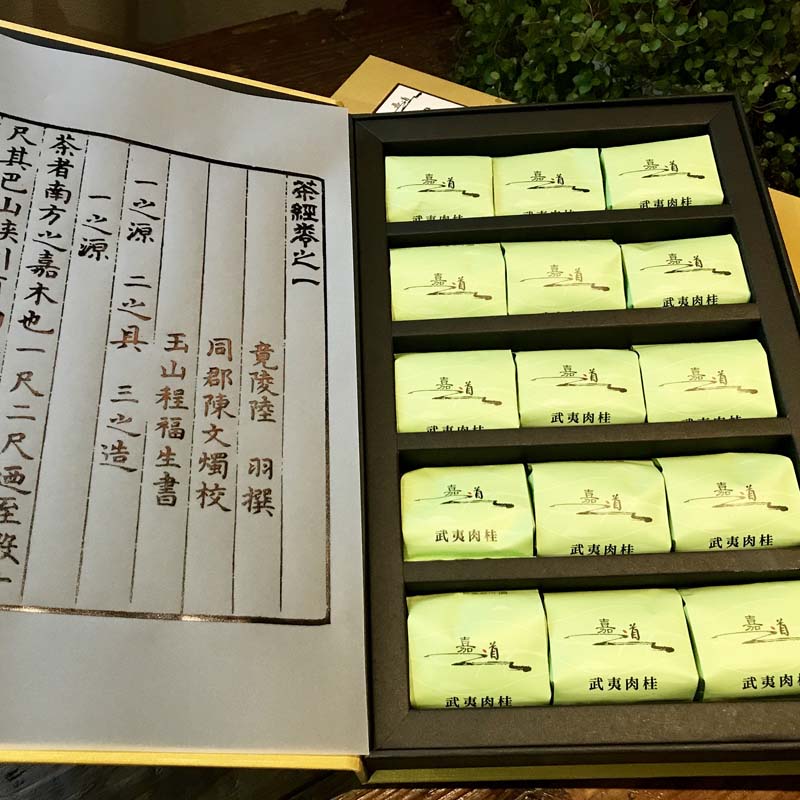 茶經卷之一
竟陵陸 羽撰
同郡陳文燭校
玉山程福生書
一之源 二之具 三之造
一之源
茶者南方之嘉木也一尺二尺迺至數
尺其巴山峽川
嘉道
武夷肉桂
嘉道
武夷肉桂
嘉道
武夷肉桂
嘉道
嘉道
嘉道
武夷肉桂
嘉道
武夷肉桂
嘉道
武夷肉桂
嘉道
武夷肉桂
嘉道
武夷肉桂
嘉道
武夷肉桂
嘉道
武夷肉桂
嘉道
武夷肉桂
嘉道
武夷肉桂
嘉道
武夷肉桂